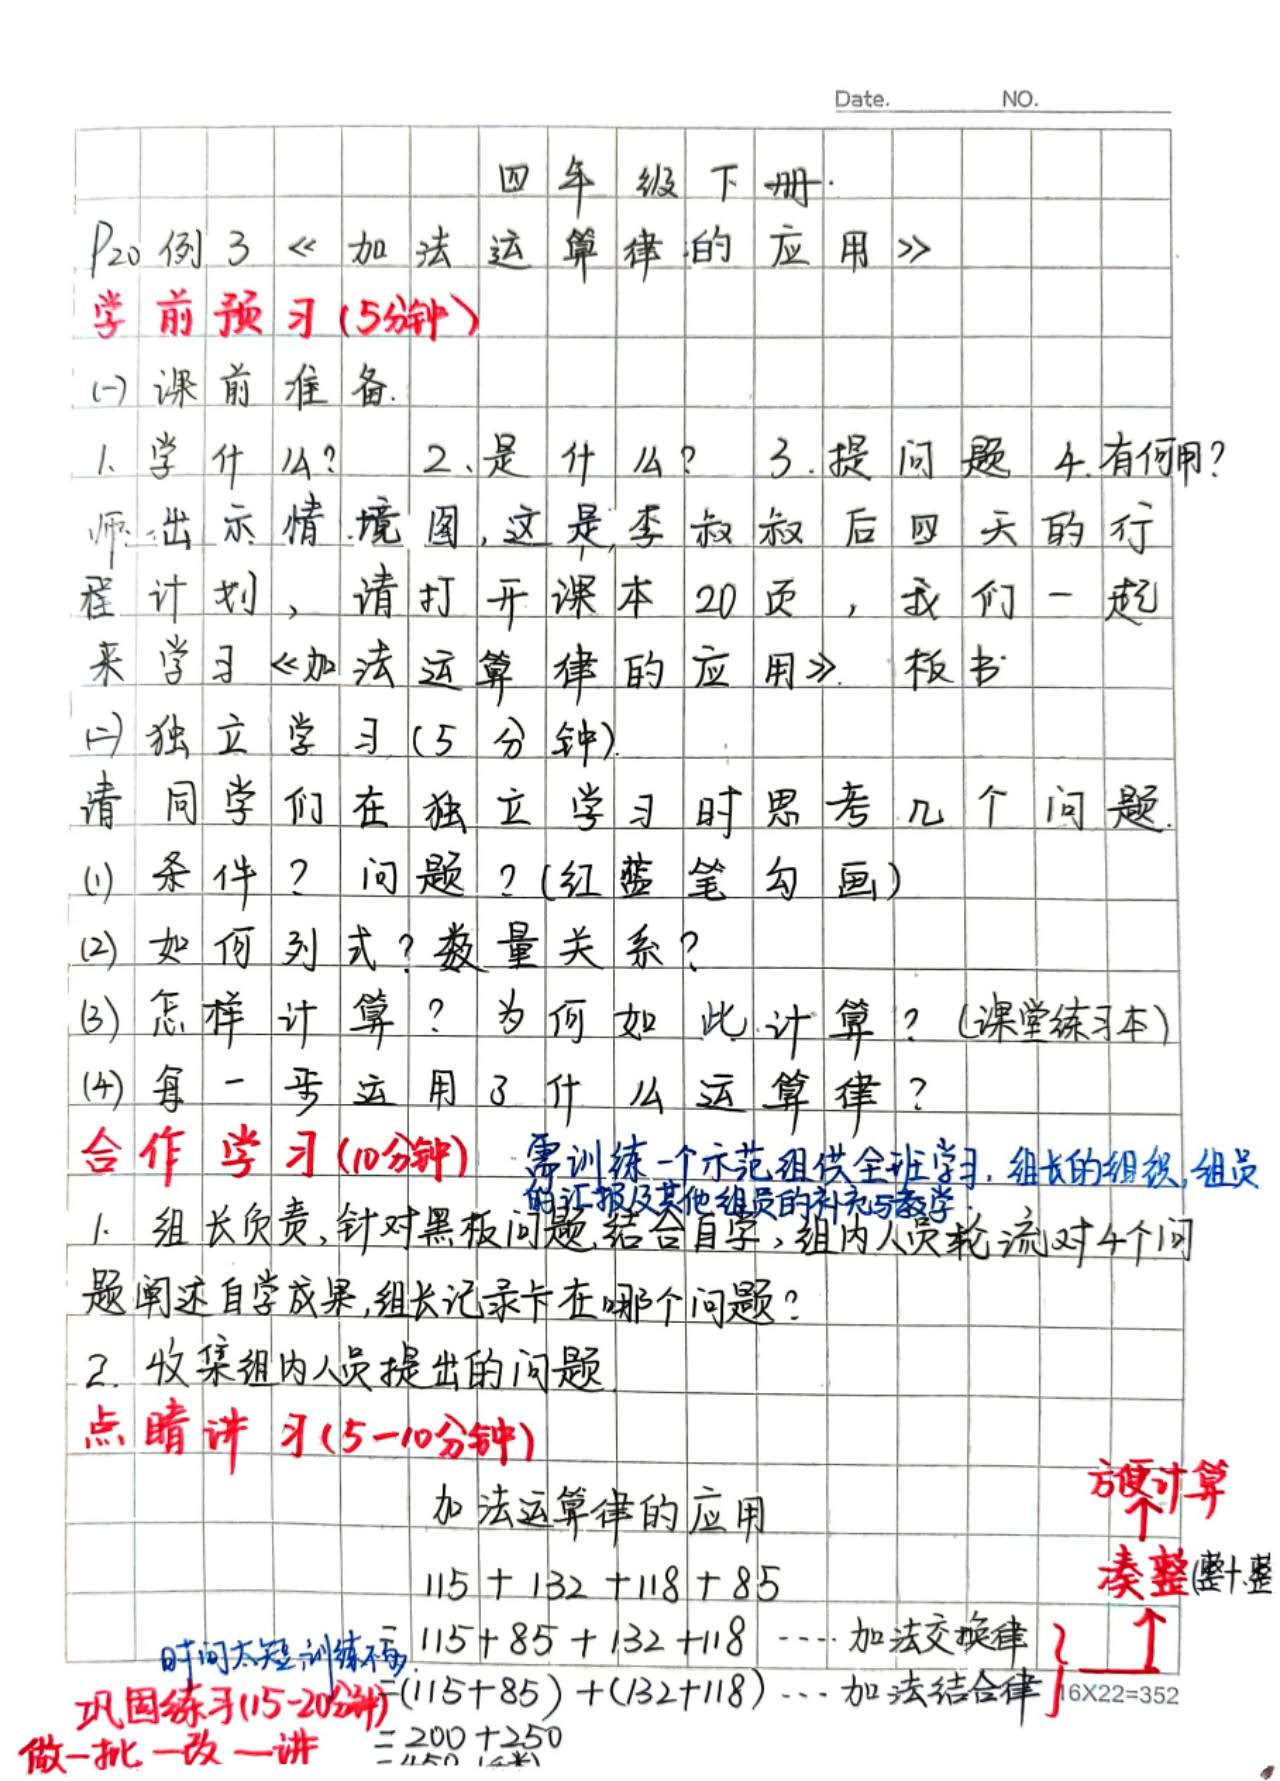 Date.  NO.
四年级下册.
P20例3《加法运算律的应用》
学前预习(5分钟)
(一)课前准备.
1、学什么? 2、是什么? 3.提问题 4.有何用?
师出示情境图,这是李叔叔后四天的行
程计划,请打开课本20页,我们一起
来学习《加法运算律的应用》.板书
(二)独立学习(5分钟).
请同学们在独立学习时思考几个问题.
(1)条件?问题?(红蓝笔勾画)
(2)如何列式?数量关系?
(3)怎样计算?为何如此计算?(课堂练习本)
(4)每一步运用了什么运算律?
合作学习(10分钟) 需训练一个示范组供全班学习,组长的组织,组员
的汇报及其他组员的补充与教学.
1.组长负责,针对黑板问题,结合自学,组内人员轮流对4个问
题阐述自学成果,组长记录卡在哪个问题?
2.收集组内人员提出的问题.
点睛讲习(5-10分钟)
方便计算
加法运算律的应用
凑整(整十.整
115+132+118+85
=115+85+132+118 ····加法交换律
时间太短,训练不够.
=(115+85)+(132+118)···加法结合律
16X22=352
巩固练习(15-20分钟)
=200+250
做一批一改一讲
=450